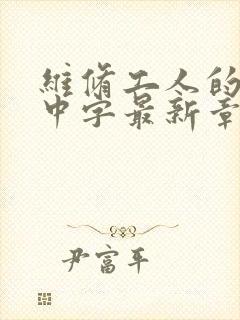 維脩工人的
中字最新章
尹富平